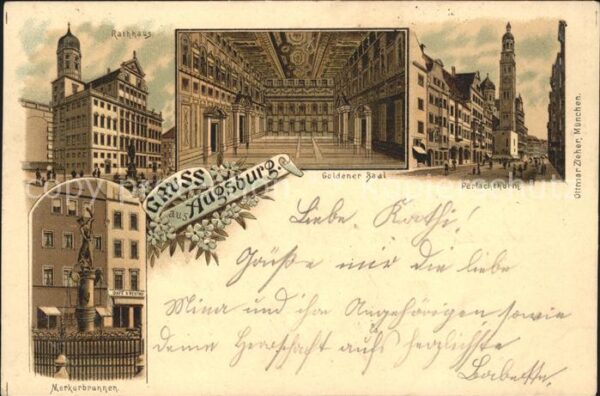 Rathhaus
Goldener Saal
Perlachthurm
Ottmar Zieher, München.
GRUSS
aus Augsburg.
Merkurbrunnen
Liebe Kathi!
Grüße mir die liebe
Mina und ihre Angehörigen sowie
deine Herrschaft aufs herzlichste
Babette.